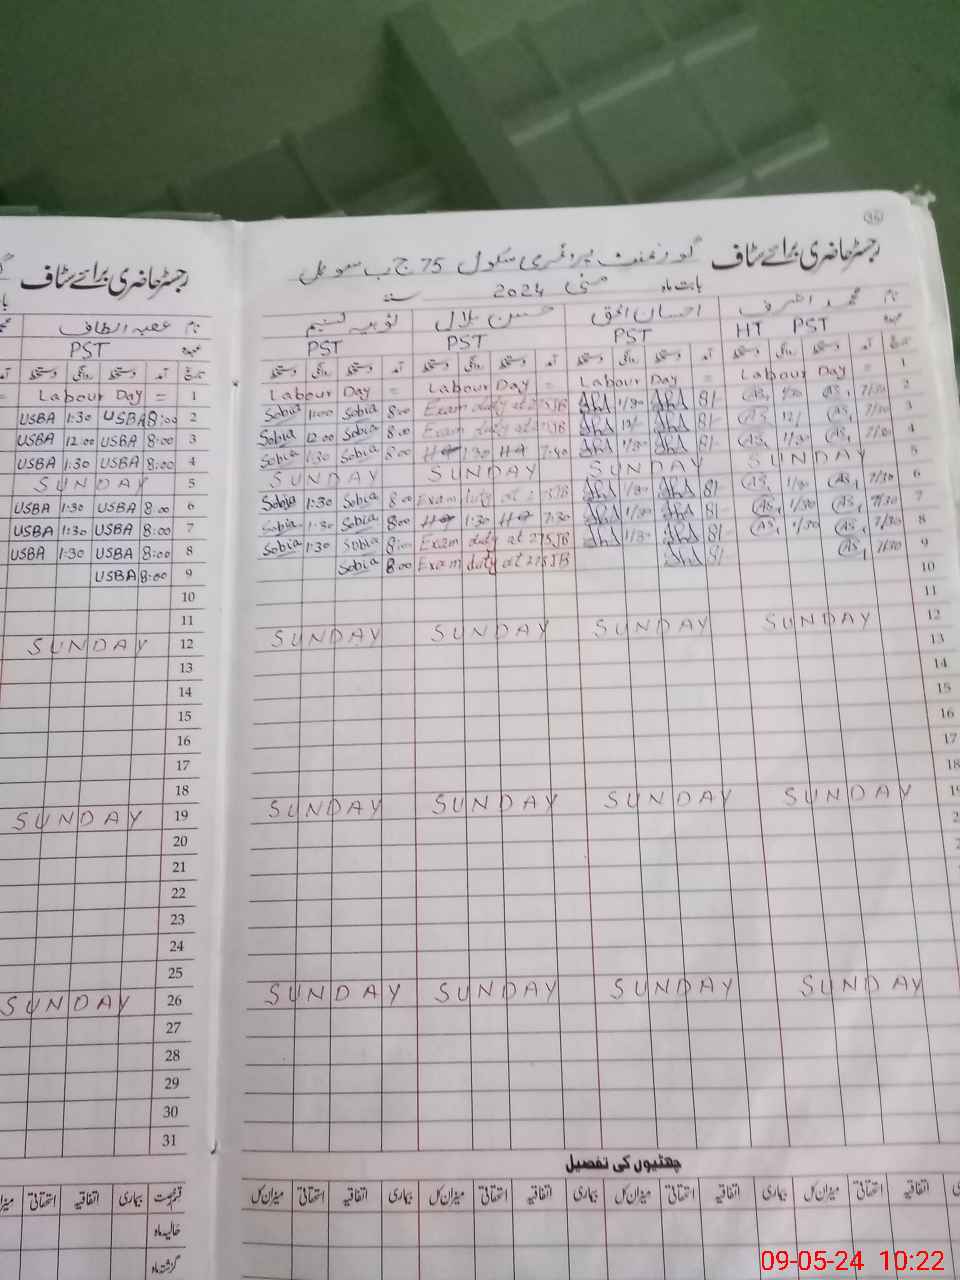 رجسٹر حاضری برائے سٹاف گورنمنٹ پرائمری سکول 75 ج ب سوہل
بابت ماہ مئی 2024 سنہ
نام محمد اشرف احسان الحق حسن بلال ثوبیہ تسنیم
عہدہ HT PST PST PST PST
تاریخ آمد دستخط روانگی دستخط آمد دستخط روانگی دستخط آمد دستخط روانگی دستخط آمد دستخط روانگی دستخط
1 Labour Day = Labour Day = Labour Day = Labour Day
2 Sobia 11:00 Sobia 8:00 Exam duty at 275JB 1/30 8/- 1/30 7/30
3 Sobia 12:00 Sobia 8:00 Exam duty at 275JB 12/- 8/- 12/ 7/30
4 Sobia 1:30 Sobia 8:00 1:30 7:40 1/30 8/- 1/30 7/30
5 SUNDAY SUNDAY SUNDAY SUNDAY
6 Sobia 1:30 Sobia 8:00 Exam duty at 275JB 1/30 8/- 1/30 7/30
7 Sobia 1:30 Sobia 8:00 1:30 7:30 1/30 8/- 1/30 7/30
8 Sobia 1:30 Sobia 8:00 Exam duty at 275JB 1/30 8/- 1/30 7/30
9 Sobia 8:00 Exam duty at 275JB 8/- 7/30
10
11
12 SUNDAY SUNDAY SUNDAY SUNDAY
13
14
15
16
17
18
19 SUNDAY SUNDAY SUNDAY SUNDAY
SUNDAY SUNDAY SUNDAY SUNDAY
چھٹیوں کی تفصیل
بیماری اتفاقیہ استحقاقی میزان کل بیماری اتفاقیہ استحقاقی میزان کل بیماری اتفاقیہ استحقاقی میزان کل
رجسٹر حاضری برائے سٹاف
نام عقبہ الطاف
عہدہ PST
تاریخ آمد دستخط روانگی دستخط
= Labour Day = 1
USBA 1:30 USBA 8:00 2
USBA 12:00 USBA 8:00 3
USBA 1:30 USBA 8:00 4
SUNDAY 5
USBA 1:30 USBA 8:00 6
USBA 1:30 USBA 8:00 7
USBA 1:30 USBA 8:00 8
USBA 8:00 9
10
11
SUNDAY 12
13
14
15
16
17
18
SUNDAY 19
20
21
22
23
24
25
SUNDAY 26
27
28
29
30
31
قسم رخصت بیماری اتفاقیہ استحقاقی میزان
حالیہ ماہ
گزشتہ ماہ
09-05-24 10:22